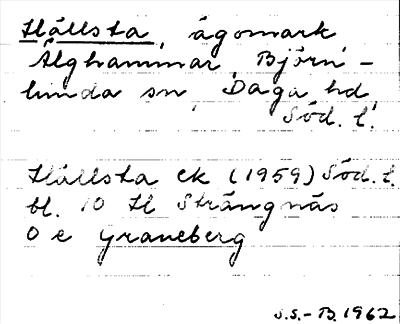 Hållsta, ägomark
Älghammar, Björn-
lunda sn, Daga hd,
Söd. l.
Hållsta ek (1959) Söd. l.
bl. 10 H Strängnäs
0 e Graneberg
S.S.-B. 1962